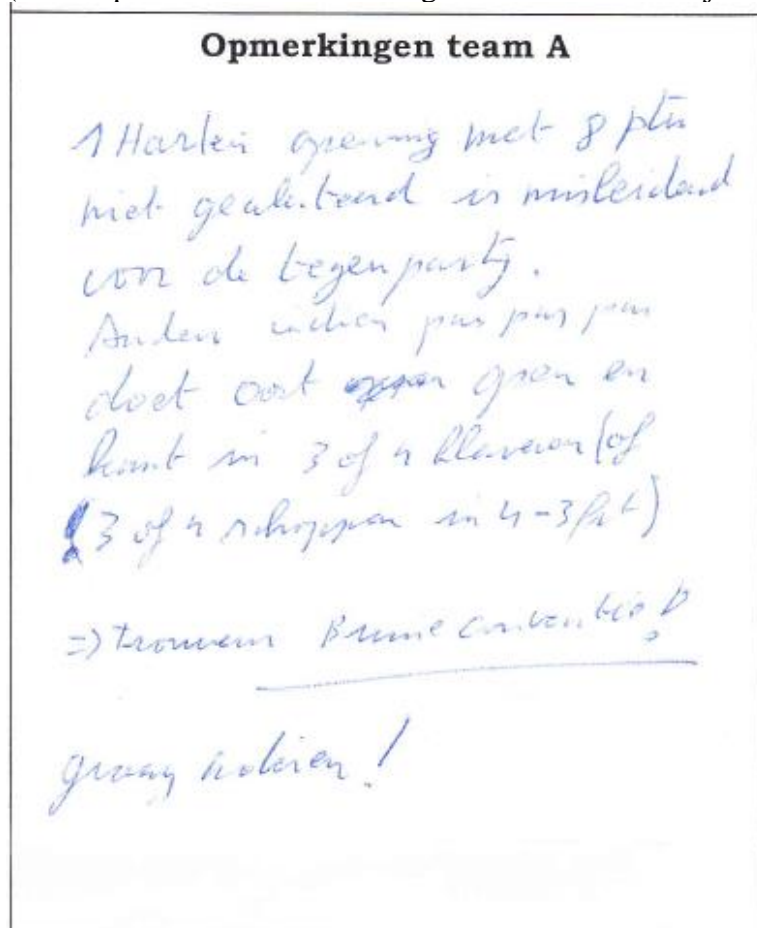 Opmerkingen team A
1 Harten opening met 8 ptn
niet gealerteerd is misleidend
voor de tegenpartij.
Anders pas pas pas
doet oost open en
komt in 3 of 4 klaveren (of
3 of 4 schoppen in 4-3 fit)
=> trouwens Bruine conventie!
graag noteren!